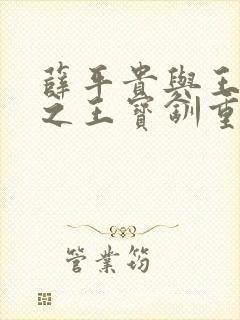 薛平貴與王
之王寶釧重
管業筠